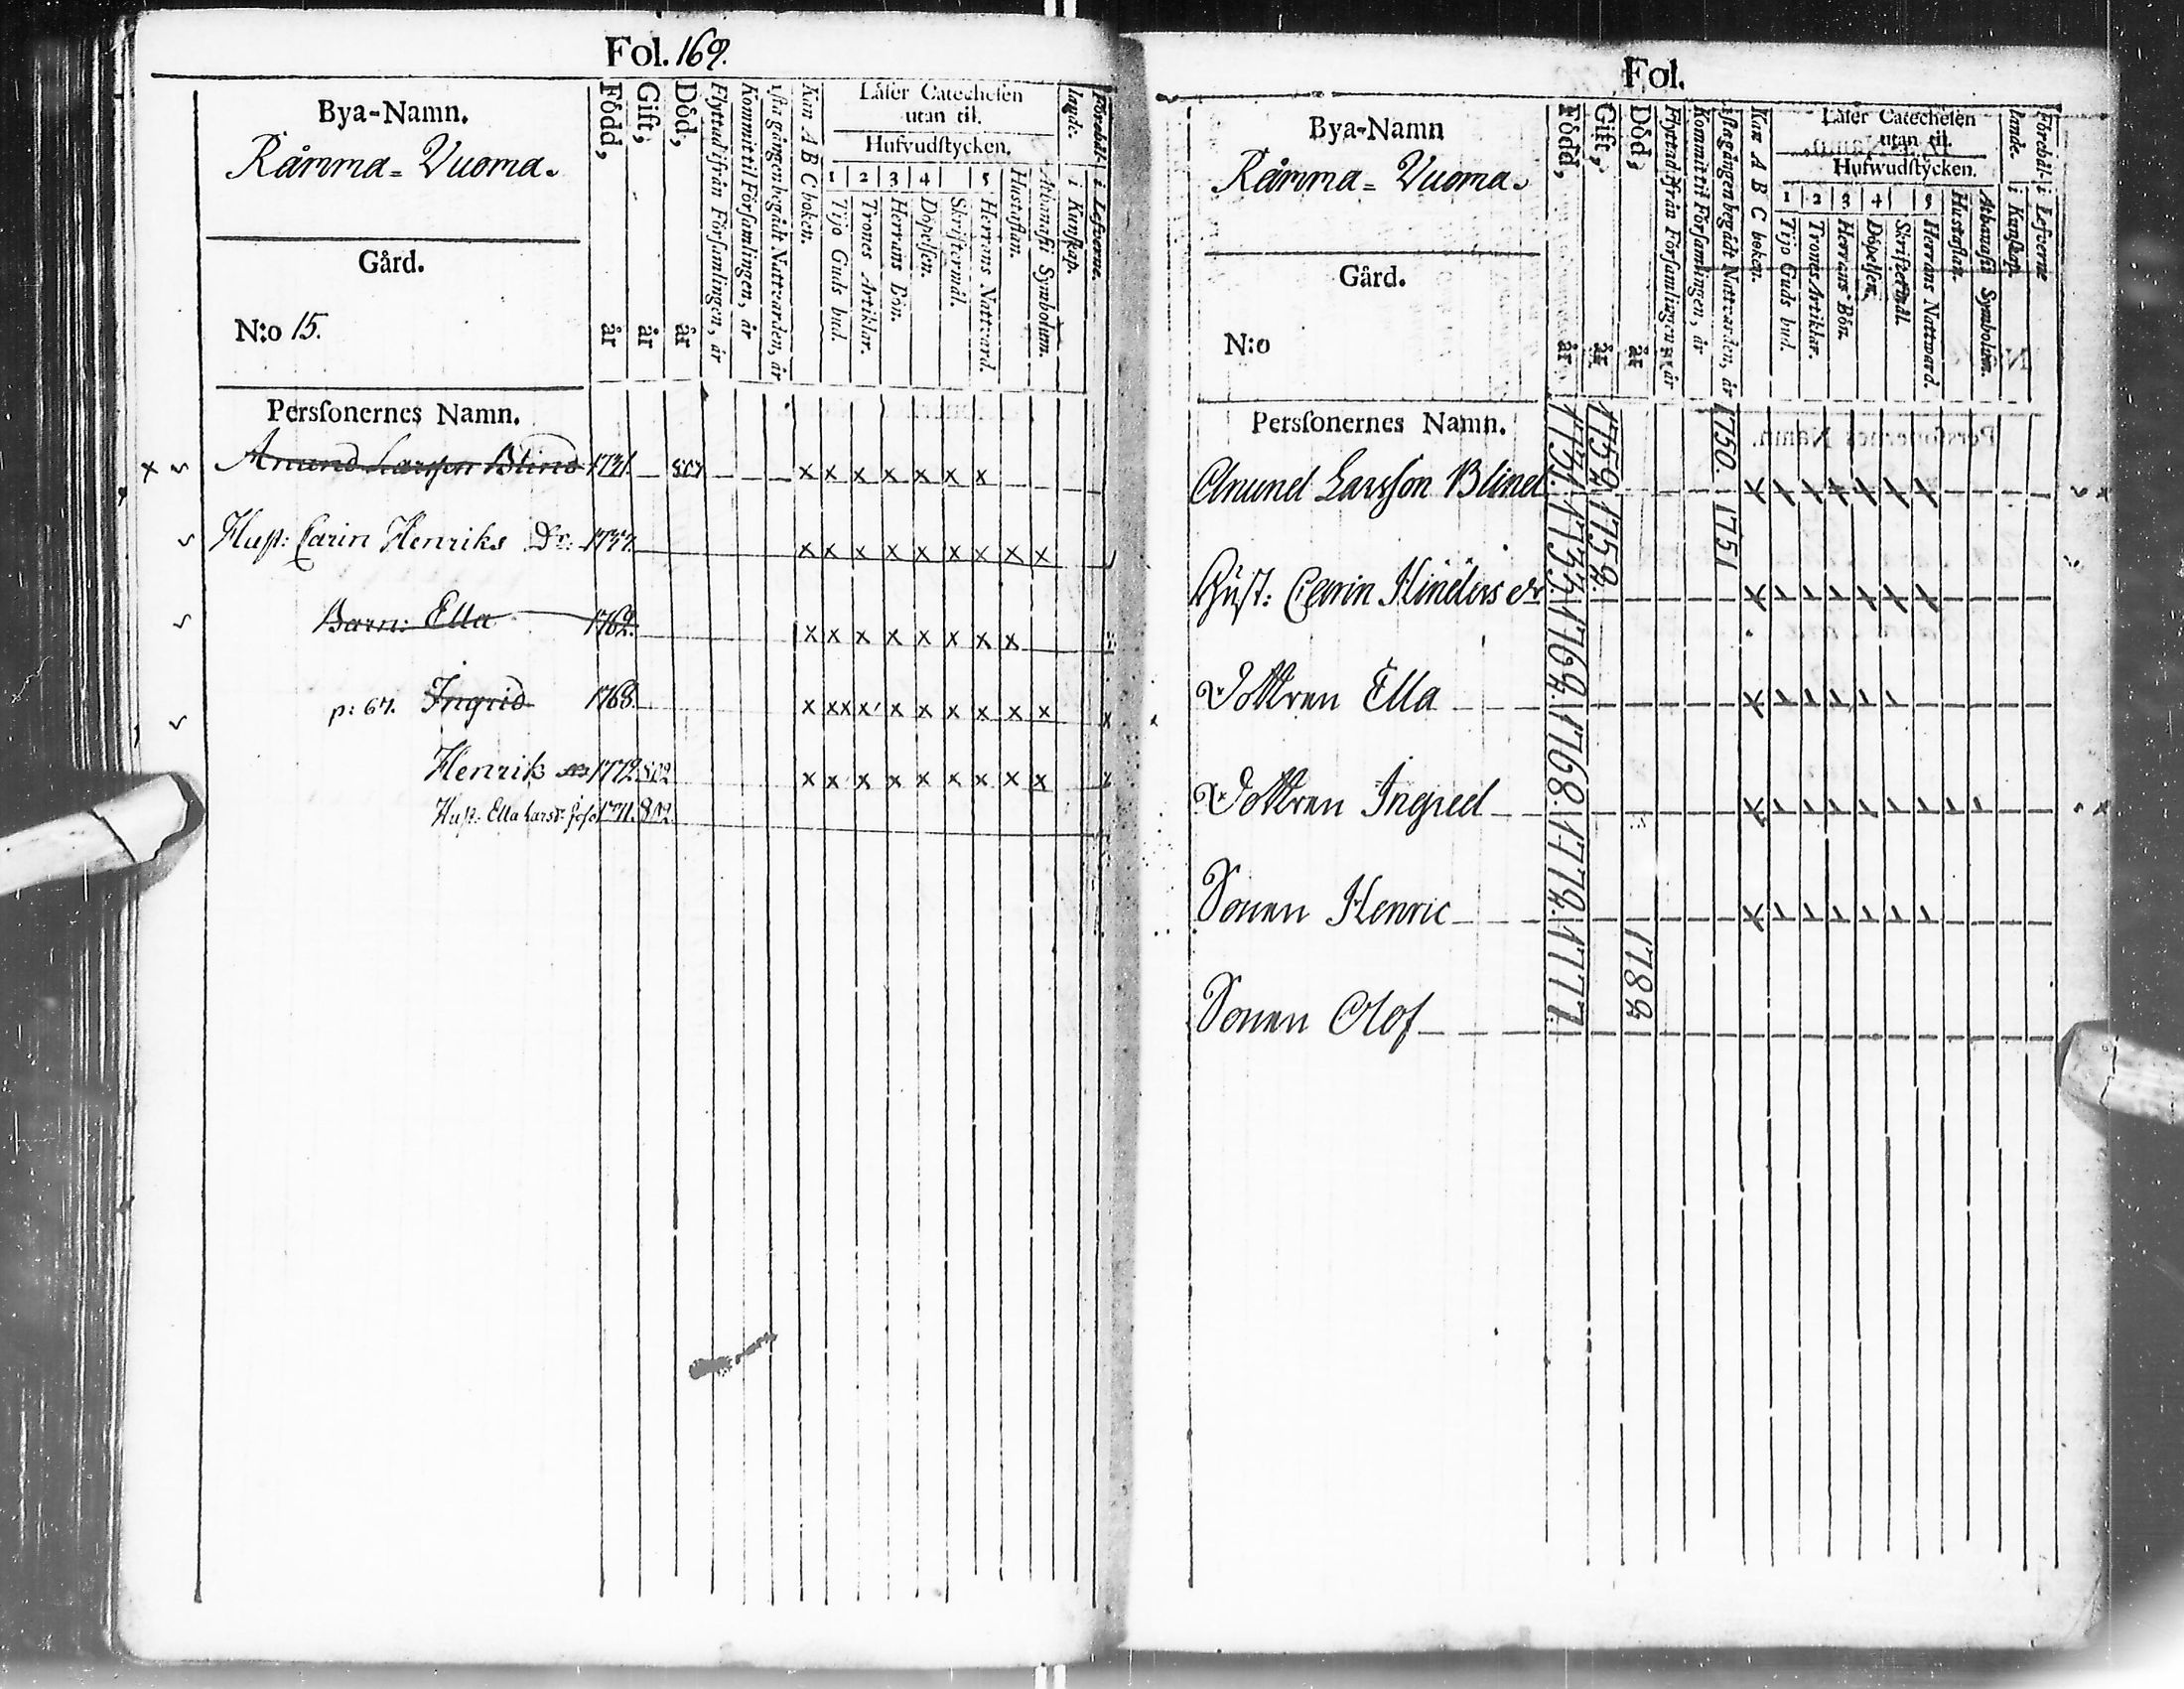 Fol. 169.
Bya-Namn.
Råmma= Vuoma.
Gård.
N:o 15.
Född, år
Gift, år
Död, år
Flyttad ifrån Församlingen, år
Kommit til Församlingen, år
1sta gången begådt Nattvarden, år
Kan A B C boken.
Läser Catechesen
utan til.
Hufvudstycken.
1 2 3 4 5
Tijo Guds bud.
Trones Artiklar.
Herrans Bön.
Döpelsen.
Skriftermål.
Herrans Nattvard.
Hustaflan.
Athanasii Symbolum.
Förehållande.
i Kunskap.
i Lefverne.
Personernes Namn.
x Amund Larsson Blind 1731. 807 x x x x x x x
Hust: Carin Henriks Dr: x x x x x x x x x
Barn: Ella 1762. x x x x x x x x
p: 67. Ingrid 1768. x xx x x x x x x x
Henrik 1772 802 x x x x x x x x x
Hust: Ella Larsdr 802.
Fol.
Bya-Namn
Råmma= Vuoma.
Gård.
N:o
Född, år
Gift, år
Död, år
Flyttad ifrån Församlingen, år
Kommit til Församlingen, år
1sta gången begådt Nattvarden, år
Kan A B C boken.
Läser Catechesen
utan til.
Hufwudstycken.
1 2 3 4 5
Tijo Guds bud.
Trones Artiklar.
Herrans Bön.
Döpelsen.
Skriftermål.
Herrans Nattward.
Hustaflan.
Athanasii Symbolum.
Förehållande.
i Kunskap.
i Lefverne
Personernes Namn.
Amund Larsson Blind 1731. 1759. 1750.
Hust: Carin Hindersdr 1733. 1759. 1751
Dottren Ella 1762.
Dottren Ingred 1768.
Sonen Henric 1772.
Sonen Olof 1777. 1782